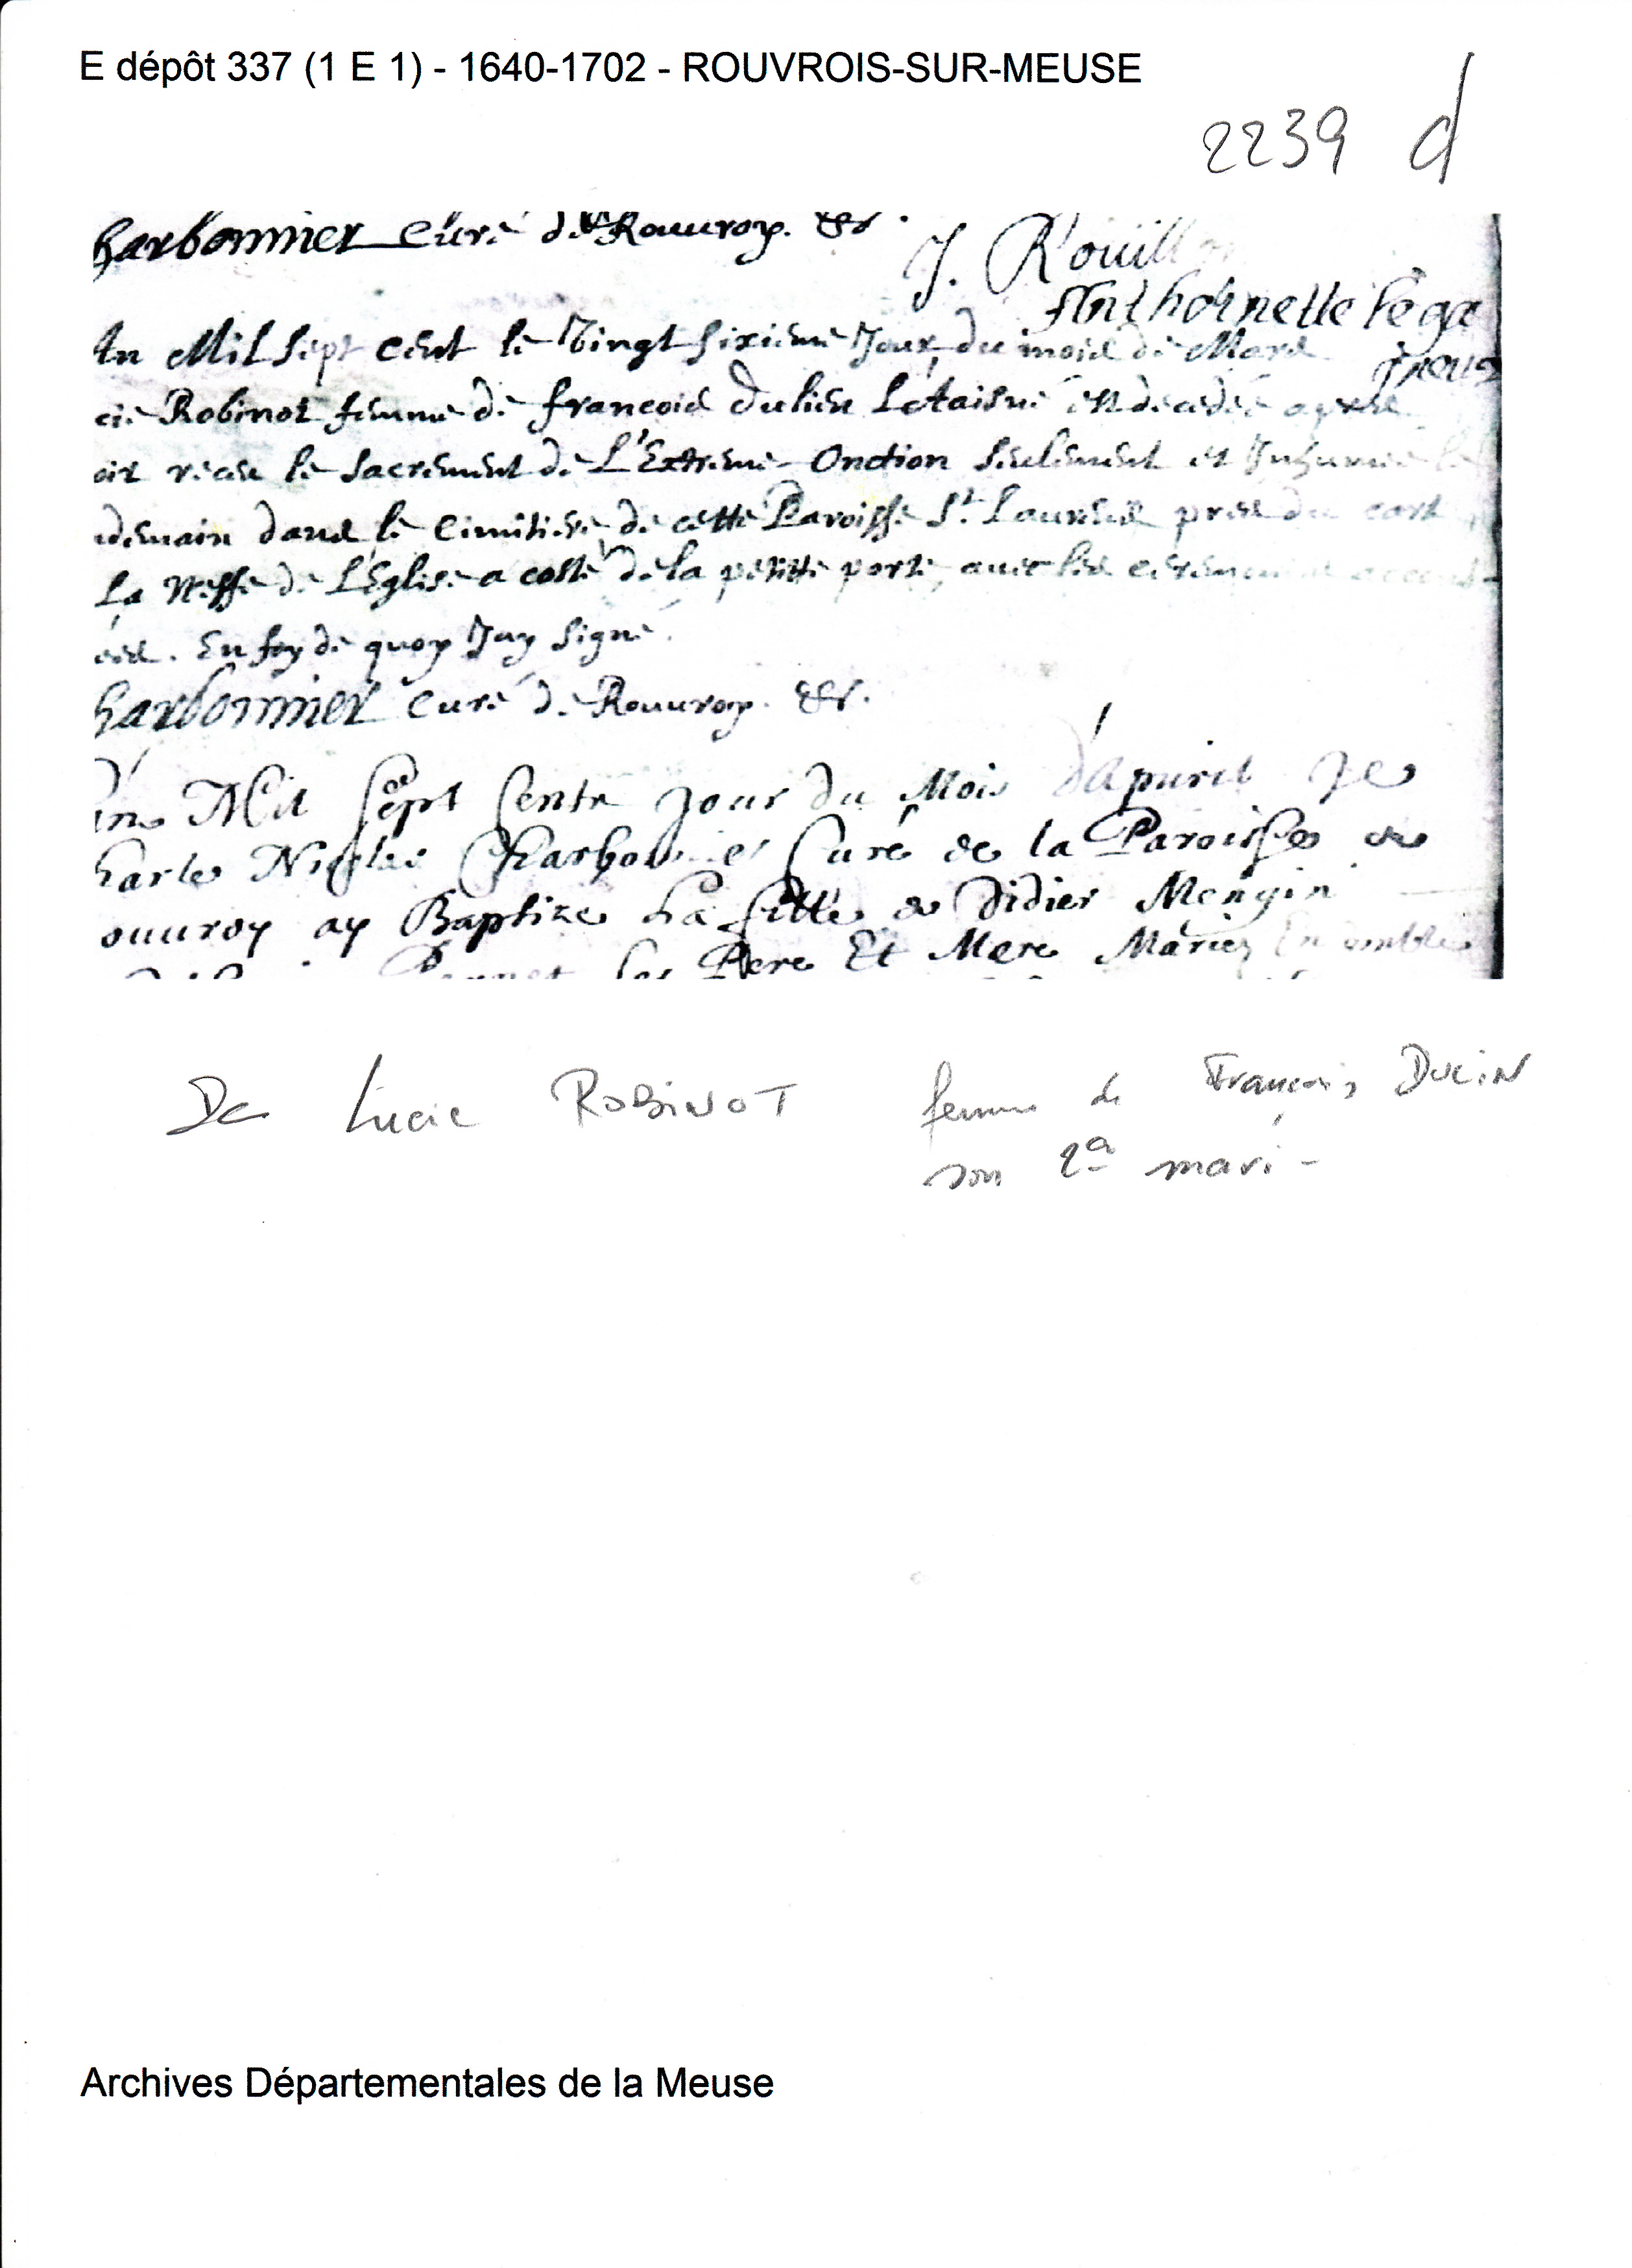 E dépôt 337 (1 E 1) - 1640-1702 - ROUVROIS-SUR-MEUSE
2239 d
harbonnier curé de Rouuroy. &c.
J. Rouillon
Anthoinette lega
An Mil sept cent le Vingt sixieme Jour du mois de Mars
cie Robinot femme de francois Dulien L'Aaisné est decedée apres
oir receu le Sacrement de L'Extreme Onction seulement et Inhumée le
ndemain dans le Cimitiere de cette Paroisse St. Laurens pres du
La Neffe de L'Eglise a costé de la petitte porte, auec les ceremonies accous
ées. En foy de quoy J'ay signé.
harbonnier curé de Rouuroy. &c.
Mil sept cents jour du Mois d'apuril Je
harle Nicolas Charbonnier Curé de la Paroisse de
ouuroy ay Baptize La fille de Didier Mengin
ses Pere Et Mere Mariez Ensembles
Dc Lucie ROBINOT femme de François DULIN
son 2e mari -
Archives Départementales de la Meuse